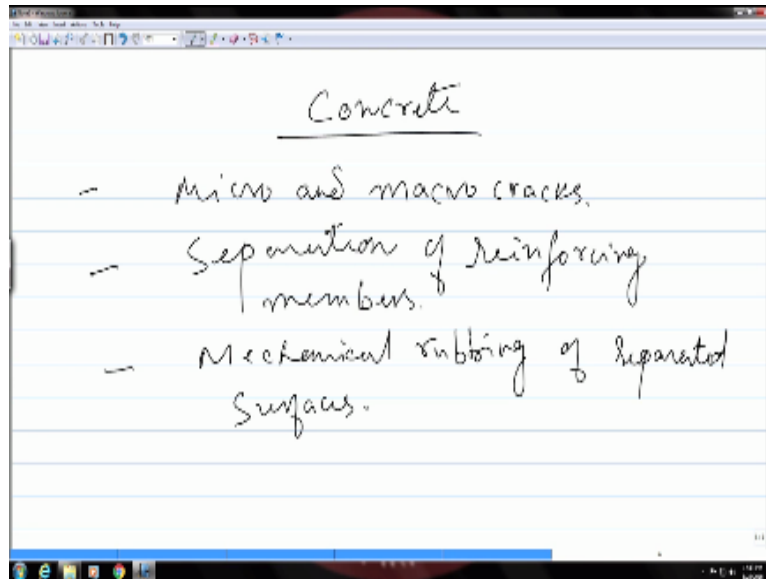 Concrete
- Micro and macro cracks.
- Separation of reinforcing
members.
- Mechanical rubbing of separated
surfaces.